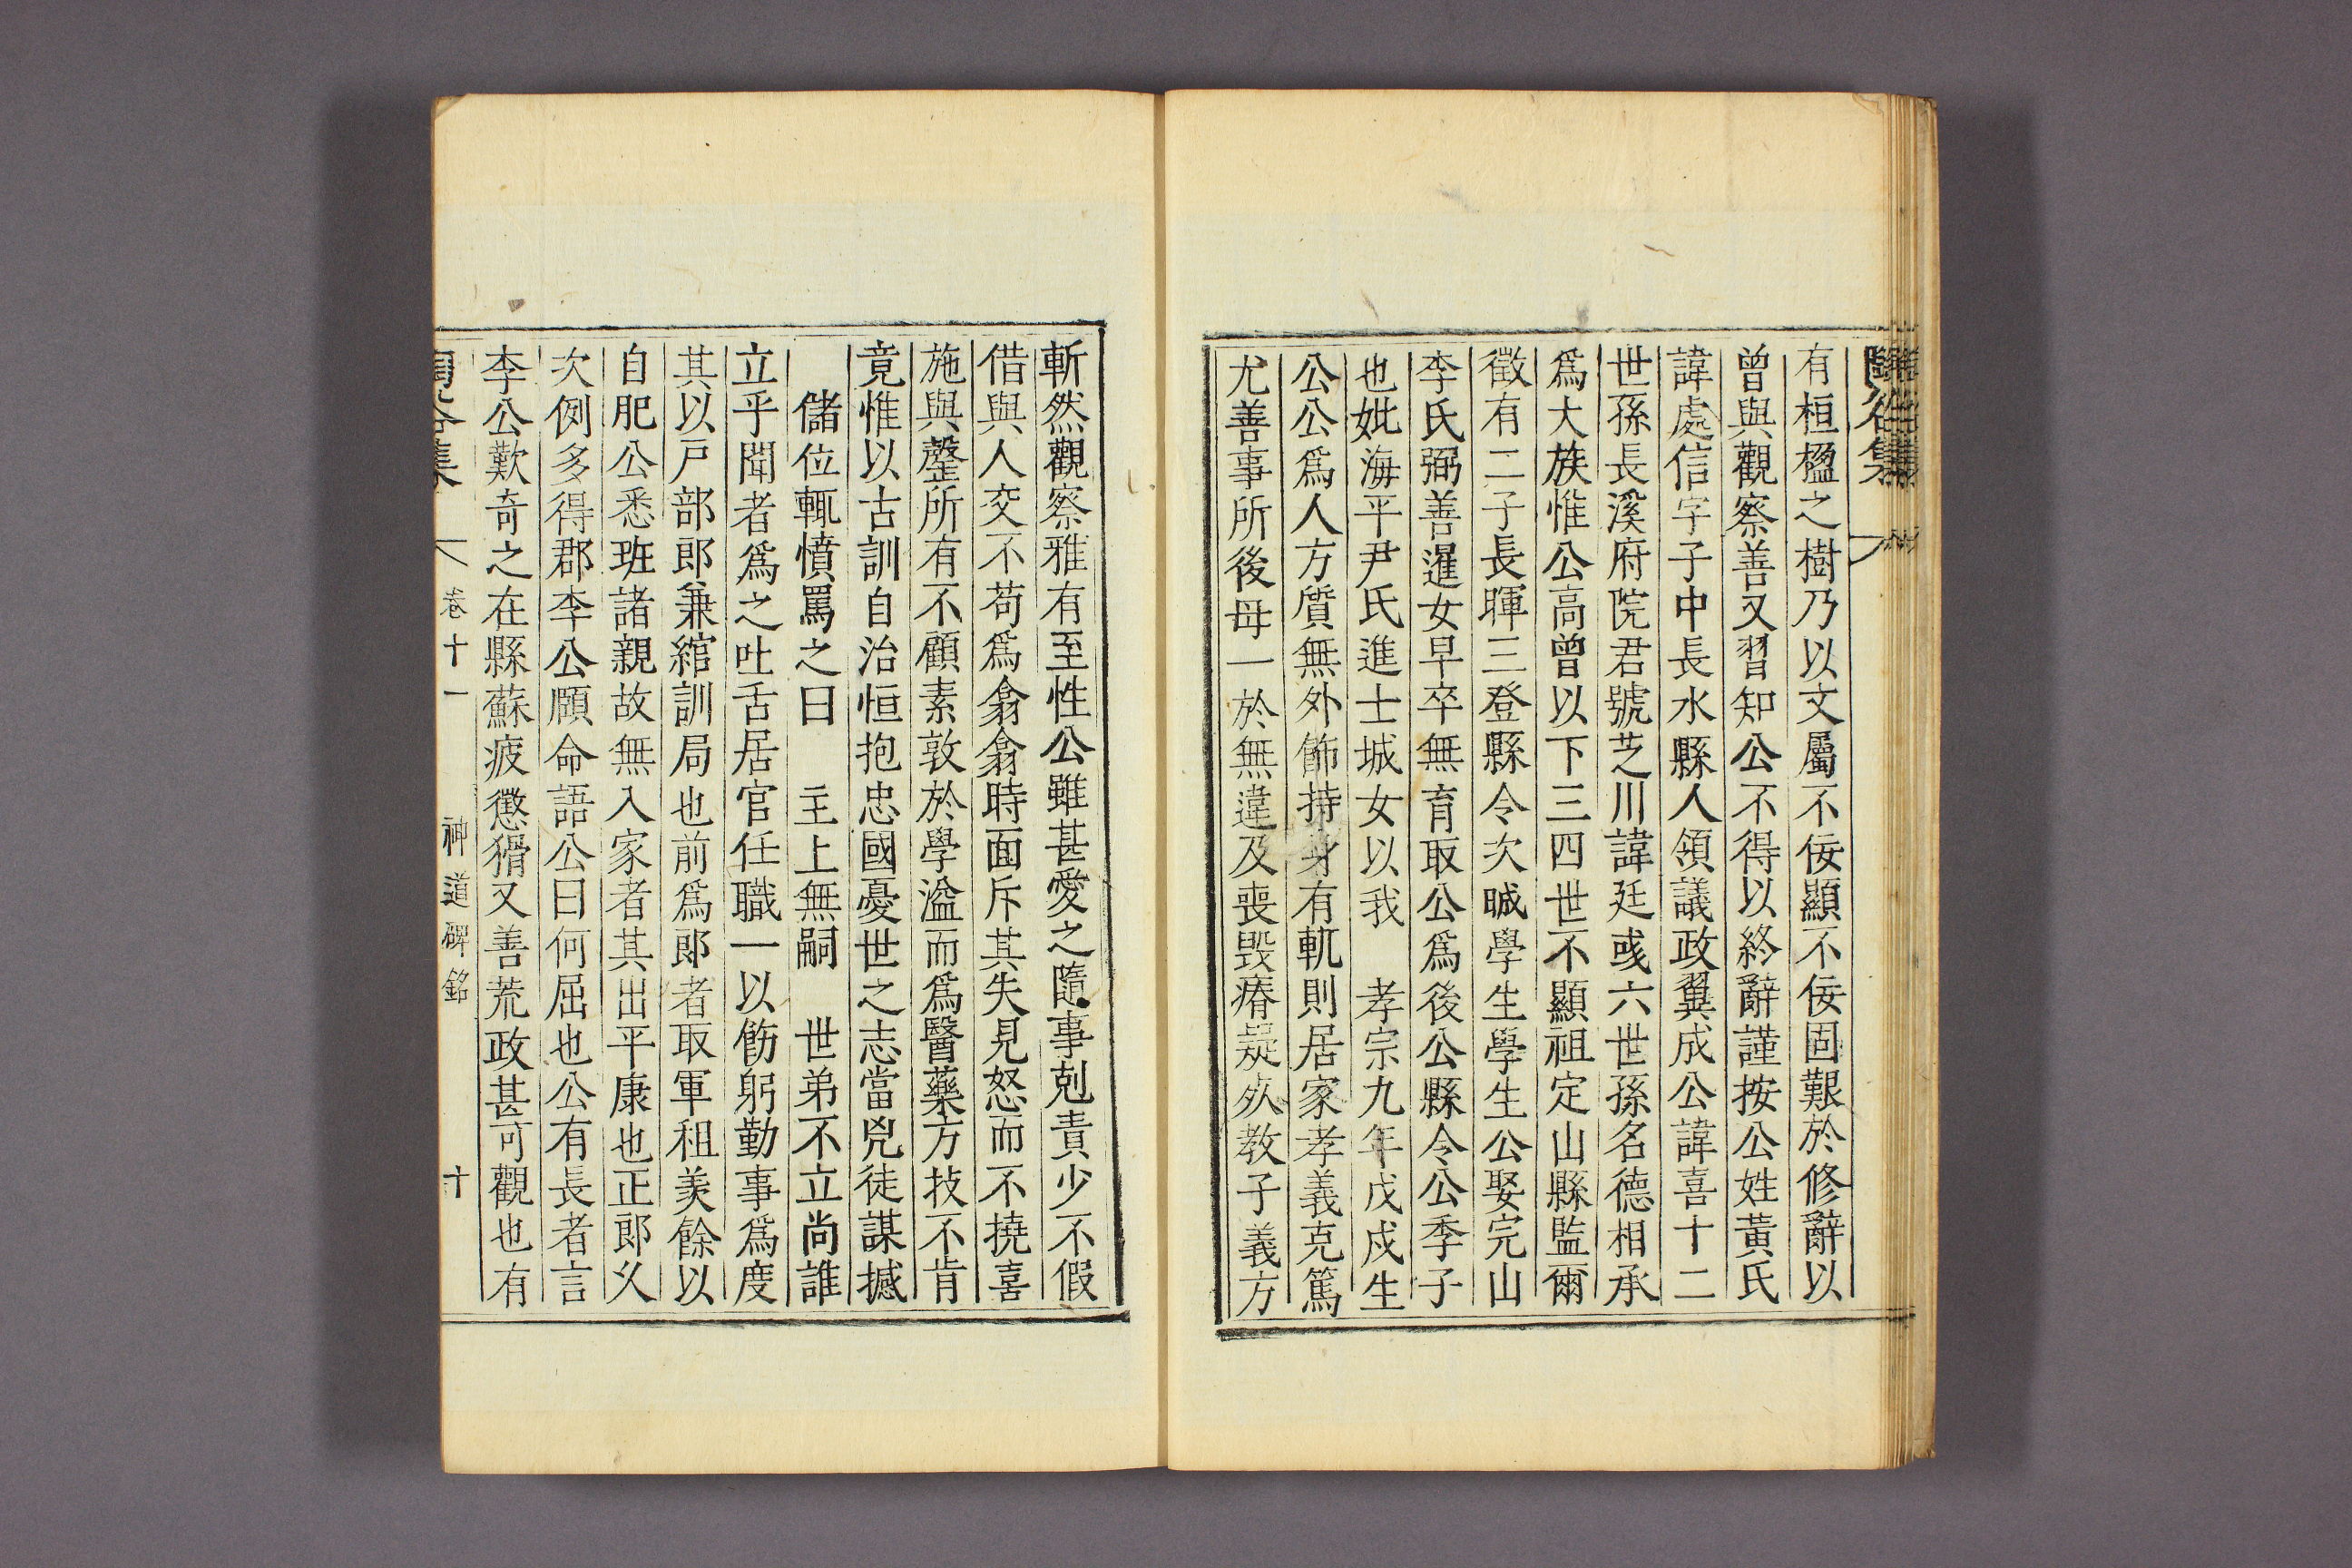 陶谷集
有桓楹之樹乃以文屬不佞顯不佞固艱於修辭以
曾與觀察善又習知公不得以終辭謹按公姓黃氏
諱處信字子中長水縣人領議政翼成公諱喜十二
世孫長溪府院君號芝川諱廷彧六世孫名德相承
爲大族惟公高曾以下三四世不顯祖定山縣監爾
徵有二子長暉三登縣令次晠學生學生公娶完山
李氏弼善暹女早卒無育取公爲後公縣令公季子
也妣海平尹氏進士城女以我 孝宗九年戊戌生
公公爲人方質無外飾持身有軌則居家孝義克篤
尤善事所後母一於無違及喪毁瘠嶷疚教子義方
斬然觀察雅有至性公雖甚愛之隨事剋責少不假
借與人交不苟爲翕翕時面斥其失見怒而不撓喜
施與罄所有不顧素敦於學溢而爲醫藥方技不肯
竟惟以古訓自治恒抱忠國憂世之志當兇徒謀撼
儲位輒憤罵之曰 主上無嗣 世弟不立尚誰
立乎聞者爲之吐舌居官任職一以飭躬勤事爲度
其以戶部郞兼綰訓局也前爲郞者取軍租羨餘以
自肥公悉班諸親故無入家者其出平康也正郞久
次例多得郡李公頤命語公曰何屈也公有長者言
李公歎奇之在縣蘇疲懲猾又善荒政甚可觀也有
陶谷集 卷十一 神道碑銘 十